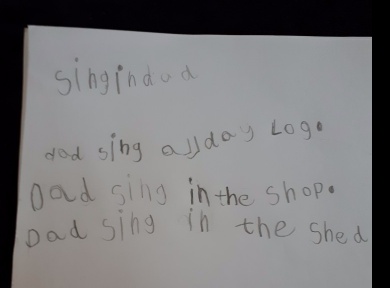 singindad
dad sing allday Log.
Dad sing in the shop.
Dad sing in the Shed